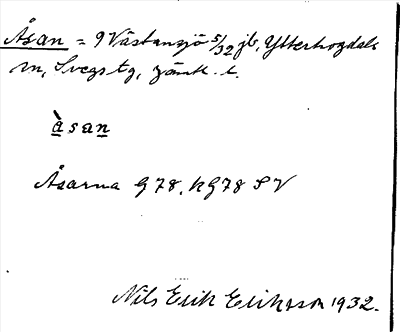 Åsan = 9 Västansjö 5/32 jb, Ytterhogdals
sn, Svegs tg, Jämt. l.
àsan
Åsarna G78, KG78 SV
Nils Erik Eriksson 1932.